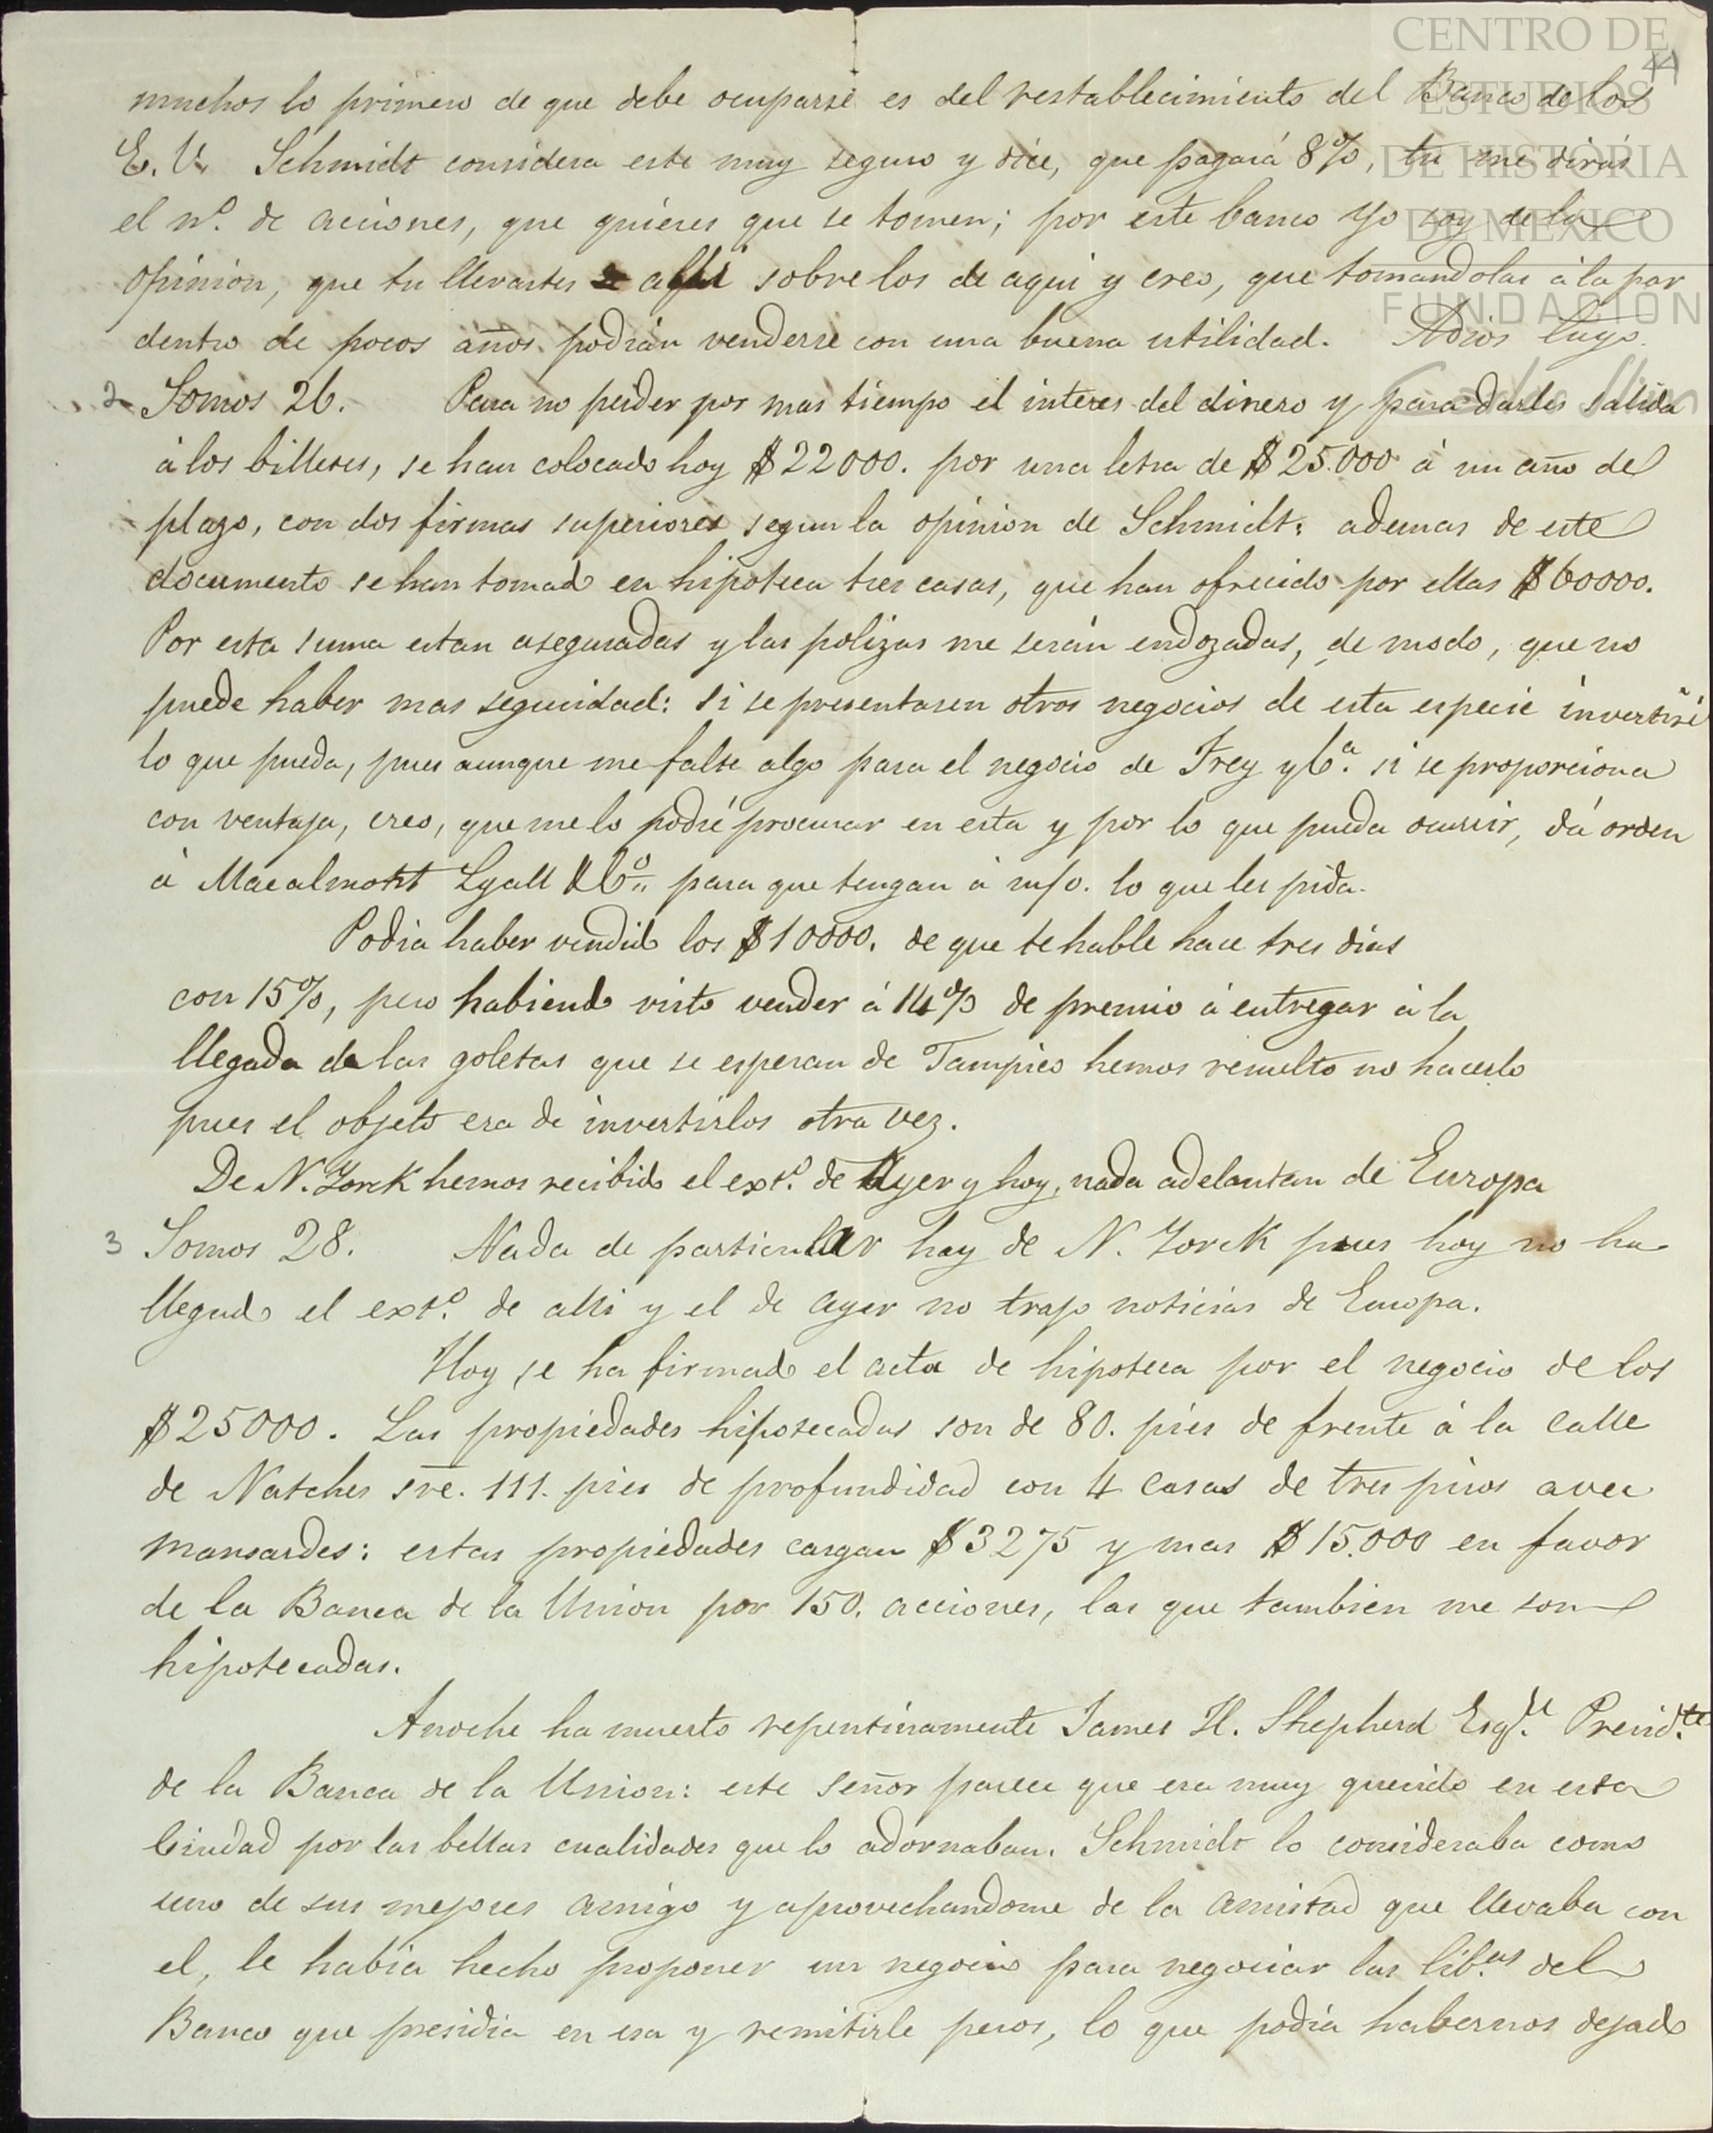 CENTRO DE
ESTUDIOS
DE HISTORIA
DE MEXICO
FUNDACIÓN
Carlos Slim
44
muchos lo primero de que debe ocuparse es del restablecimiento del Banco de los
E. U. Schmidt considera este muy seguro y dice, que pagará 8%, tu me dirás
el nº. de acciones, que quieres que se tomen; por este banco Yo soy de la
opinion, que tu llevastes allí sobre los de aqui y creo, que tomandolas á la par
dentro de pocos años podrán venderse con una buena utilidad. Adios tuyo.
2 Somos 26. Para no perder por mas tiempo el interes del dinero y para darles salida
á los billetes, se han colocado hoy $22000. por una letra de $25.000 á un año de
plazo, con dos firmas superiores segun la opinion de Schmidt: ademas de este
documento se han tomado en hipoteca tres casas, que han ofrecido por ellas $60000.
Por esta suma estan aseguradas y las polizas me serán endozadas, de modo, que no
puede haber mas seguridad: si se presentasen otros negocios de esta especie invertiré
lo que pueda, pues aunque me falte algo para el negocio de Frey y Cª. si se proporciona
con ventaja, creo, que me lo podré procurar en esta y por lo que pueda ocurrir, dá orden
á Macalmont Lyall & Cº. para que tengan á m/o. lo que les pida.
Podia haber vendido los $10000. de que te hable hace tres dias
con 15%, pero habiendo visto vender á 14% de premio á entregar á la
llegada de las goletas que se esperan de Tampico hemos resuelto no hacerlo
pues el objeto era de invertirlos otra vez.
De N. Yorck hemos recibido el extº. de Ayer y hoy, nada adelantan de Europa
3 Somos 28. Nada de particular hay de N. Yorck pues hoy no ha
llegado el extº. de alli y el de ayer no trajo noticias de Europa.
Hoy se ha firmado el acta de hipoteca por el negocio de los
$25000. Las propiedades hipotecadas son de 80. pies de frente á la calle
de Natches sre. 111. pies de profundidad con 4 casas de tres pisos avec
mansardes: estas propiedades cargan $3275 y mas $15.000 en favor
de la Banca de la Union por 150. acciones, las que tambien me son
hipotecadas.
Anoche ha muerto repentinamente James H. Shepherd Esqre. Presidte.
de la Banca de la Union: este señor parece que era muy querido en esta
Ciudad por las bellas cualidades que lo adornaban. Schmidt lo consideraba como
uno de sus mejores amigo y aprovechandome de la amistad que llevaba con
el, le habia hecho proponer un negocio para negociar las lib.as del
Banco que presidia en esa y remitirle pesos, lo que podia habernos dejado